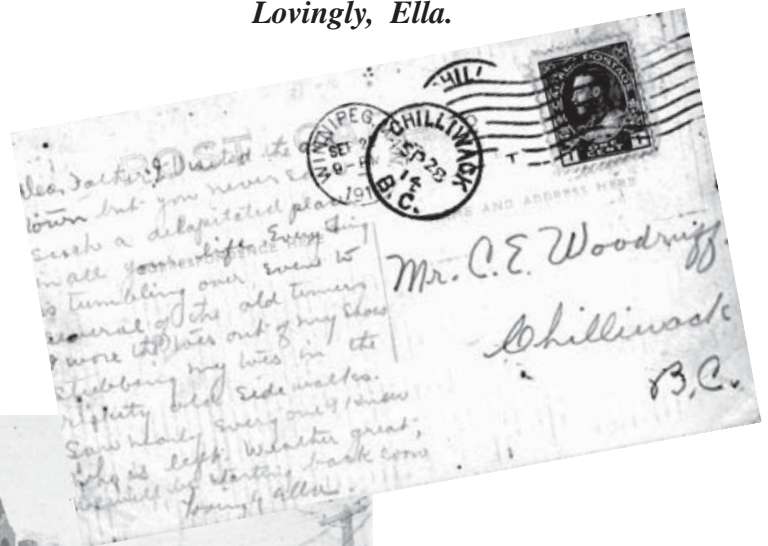 Lovingly, Ella.
WINNIPEG
SEP 2
9-PM
191
CHILLIWACK
SP 28
14
B.C.
POSTAGE
1 CENT
POST
NAME AND ADDRESS HERE
CORRESPONDENCE HERE
Dear Father: I visited the
town but you never saw
such a delapitated place
in all your life. Everything
is tumbling over even to
several of the old timers
I wore the toes out of my shoes
stubbing my toes in the
rickity old sidewalks.
Saw nearly every one I knew
who is left. Weather great,
will be starting back soon
Lovingly Ella.
Mr. C. E. Woodruff.
Chilliwack
B.C.